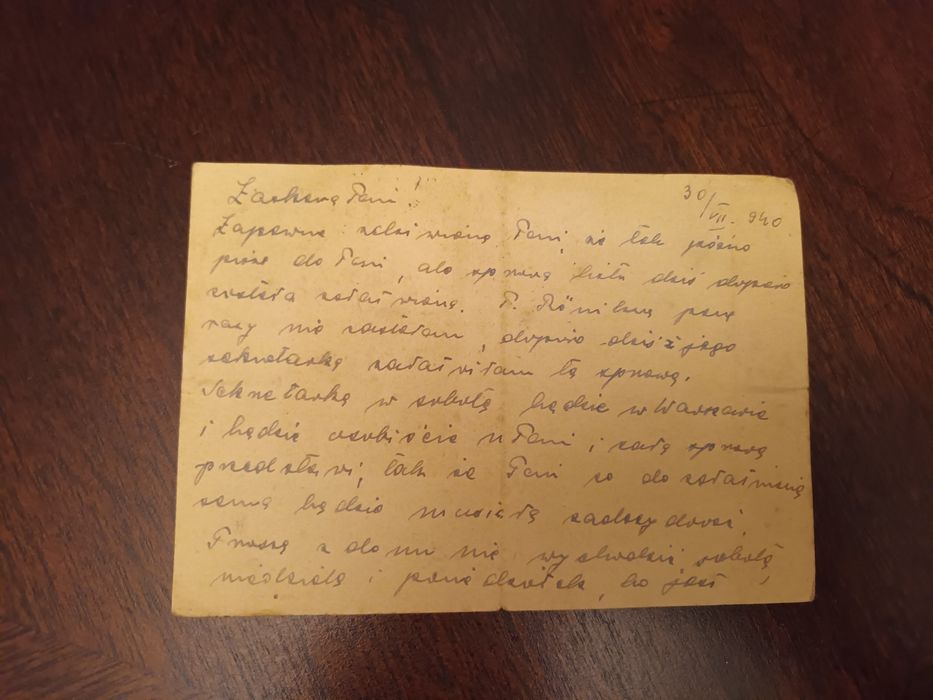 Łaskawa Pani!
30/VII. 940
Zapewne zdziwiona Pani, że tak późno
piszę do Pani, ale sprawa listu dziś dopiero
została załatwiona. P. parę
razy nie zastałam, dopiero dziś z jego
sekretarką załatwiłam tą sprawę.
Sekretarka w sobotę będzie w Warszawie
i będzie osobiście u Pani i całą sprawę
przedstawi, tak że Pani co do załatwienia
sama będzie musiała zadecydować.
Proszę z domu nie wychodzić sobotę,
niedzielę i poniedziałek, bo jest